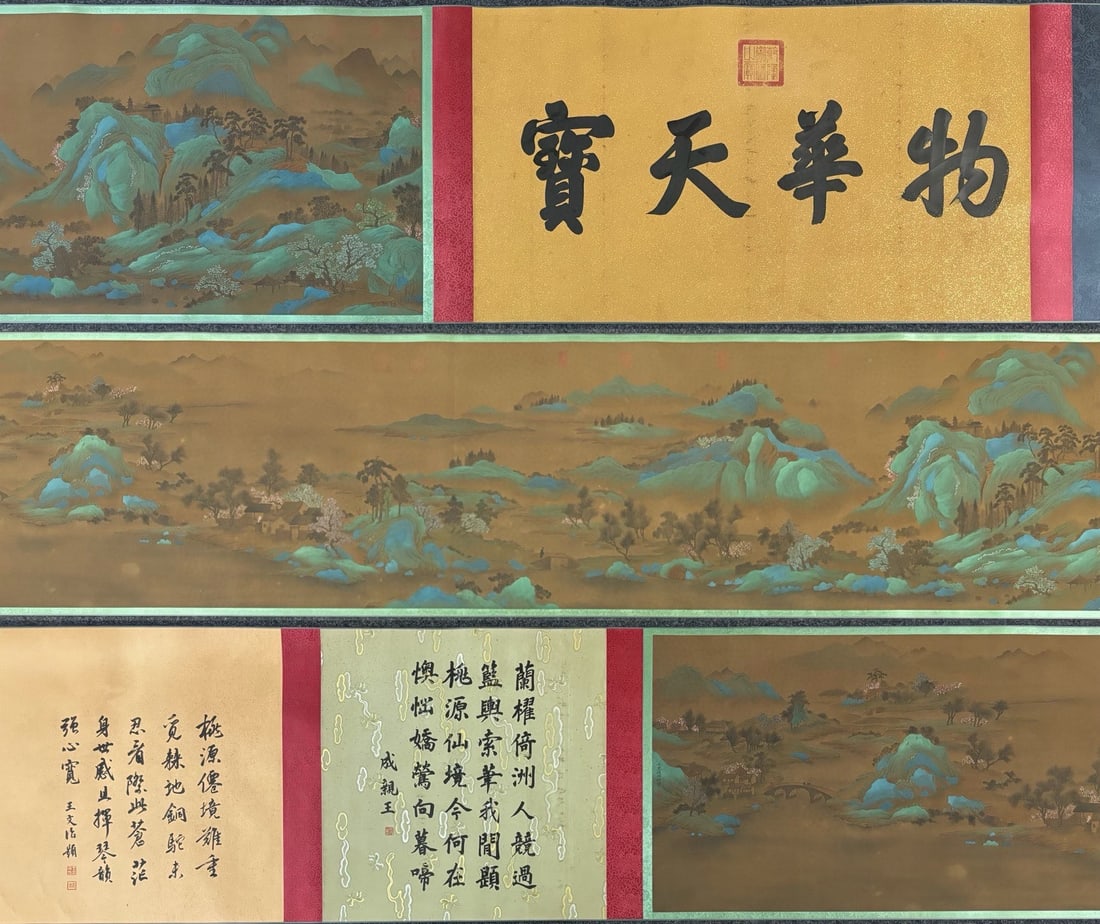 物華天寶
蘭櫂倚洲人競過
籃輿索華我閒題
桃源仙境今何在
懊惱嬌鶯向暮啼
成親王
桃源僊境難重
覓棘地銅駝未
忍看際此蒼茫
身世感且揮琴韻
强心寬
王文治題